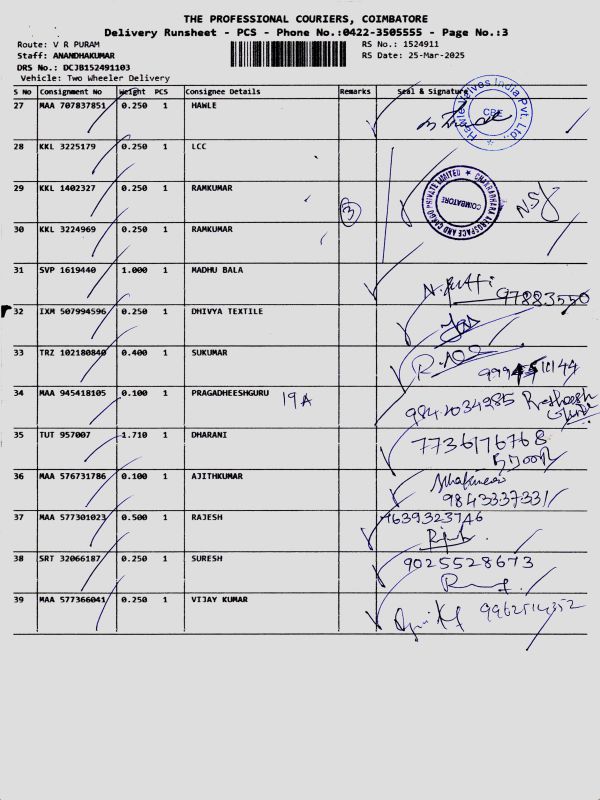 THE PROFESSIONAL COURIERS, COIMBATORE
Delivery Runsheet - PCS - Phone No.:0422-3505555 - Page No.:3
Route: V R PURAM
RS No.: 1524911
Staff: ANANDHAKUMAR
RS Date: 25-Mar-2025
DRS No.: DCJB152491103
Vehicle: Two Wheeler Delivery
S No Consignment No Weight PCS Consignee Details Remarks Seal & Signature
27 MAA 707837851 0.250 1 HAWLE
Hawle Valves India Pvt. Ltd.,
CBE
28 KKL 3225179 0.250 1 LCC
29 KKL 1402327 0.250 1 RAMKUMAR
3
CHAKRADHARA AEROSPACE AND CARGO PRIVATE LIMITED
COIMBATORE
30 KKL 3224969 0.250 1 RAMKUMAR
31 SVP 1619440 1.000 1 MADHU BALA
97883550
32 IXM 507994596 0.250 1 DHIVYA TEXTILE
33 TRZ 102180840 0.400 1 SUKUMAR
34 MAA 945418105 0.100 1 PRAGADHEESHGURU 19A
9842034985
35 TUT 957007 1.710 1 DHARANI
7736176768
36 MAA 576731786 0.100 1 AJITHKUMAR
9843337331
37 MAA 577301023 0.500 1 RAJESH
9639323746
38 SRT 32066187 0.250 1 SURESH
9025528673
39 MAA 577366041 0.250 1 VIJAY KUMAR
9962514352